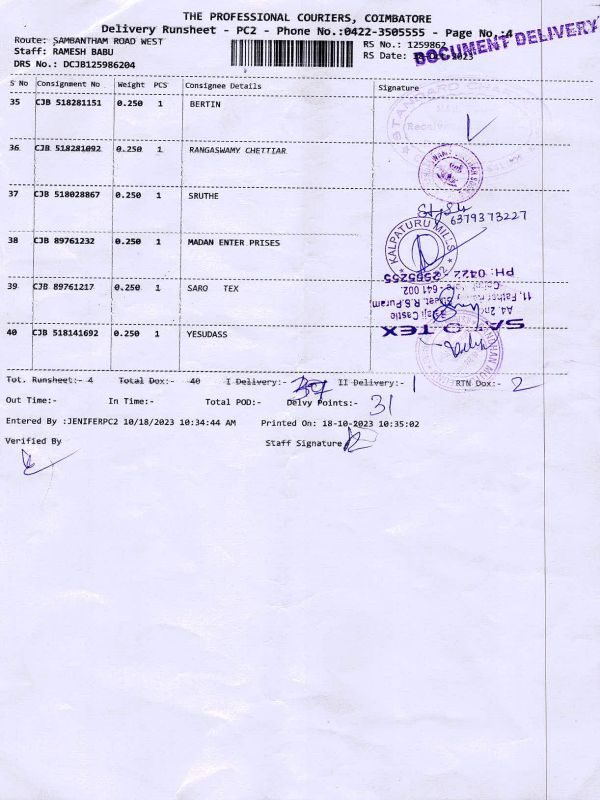 THE PROFESSIONAL COURIERS, COIMBATORE
Delivery Runsheet - PC2 - Phone No.:0422-3505555 - Page No.:4
DOCUMENT DELIVERY
Route: SAMBANTHAM ROAD WEST RS No.: 1259862
Staff: RAMESH BABU RS Date: 2023
DRS No.: DCJB125986204
S No Consignment No Weight PCS Consignee Details Signature
35 CJB 518281151 0.250 1 BERTIN
36 CJB 518281092 0.250 1 RANGASWAMY CHETTIAR
37 CJB 518028867 0.250 1 SRUTHE
6379373227
38 CJB 89761232 0.250 1 MADAN ENTER PRISES
KALPATURU MILLS
39 CJB 89761217 0.250 1 SARO TEX
PH: 0422
641 002.
R.S.Puram,
40 CJB 518141692 0.250 1 YESUDASS
Tot. Runsheet:- 4 Total Dox:- 40 I Delivery:- 37 II Delivery:- 1 RTN Dox:- 2
Out Time:- In Time:- Total POD:- Delvy Points:- 31
Entered By :JENIFERPC2 10/18/2023 10:34:44 AM Printed On: 18-10-2023 10:35:02
Verified By Staff Signature